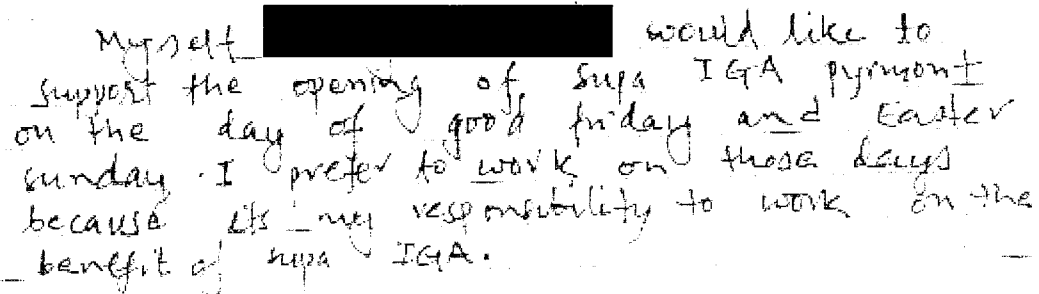 Myself would like to
support the opening of supa IGA pyrmont
on the day of good friday and Easter
sunday. I prefer to work on those days
because its my responsibility to work on the
benefit of supa IGA.